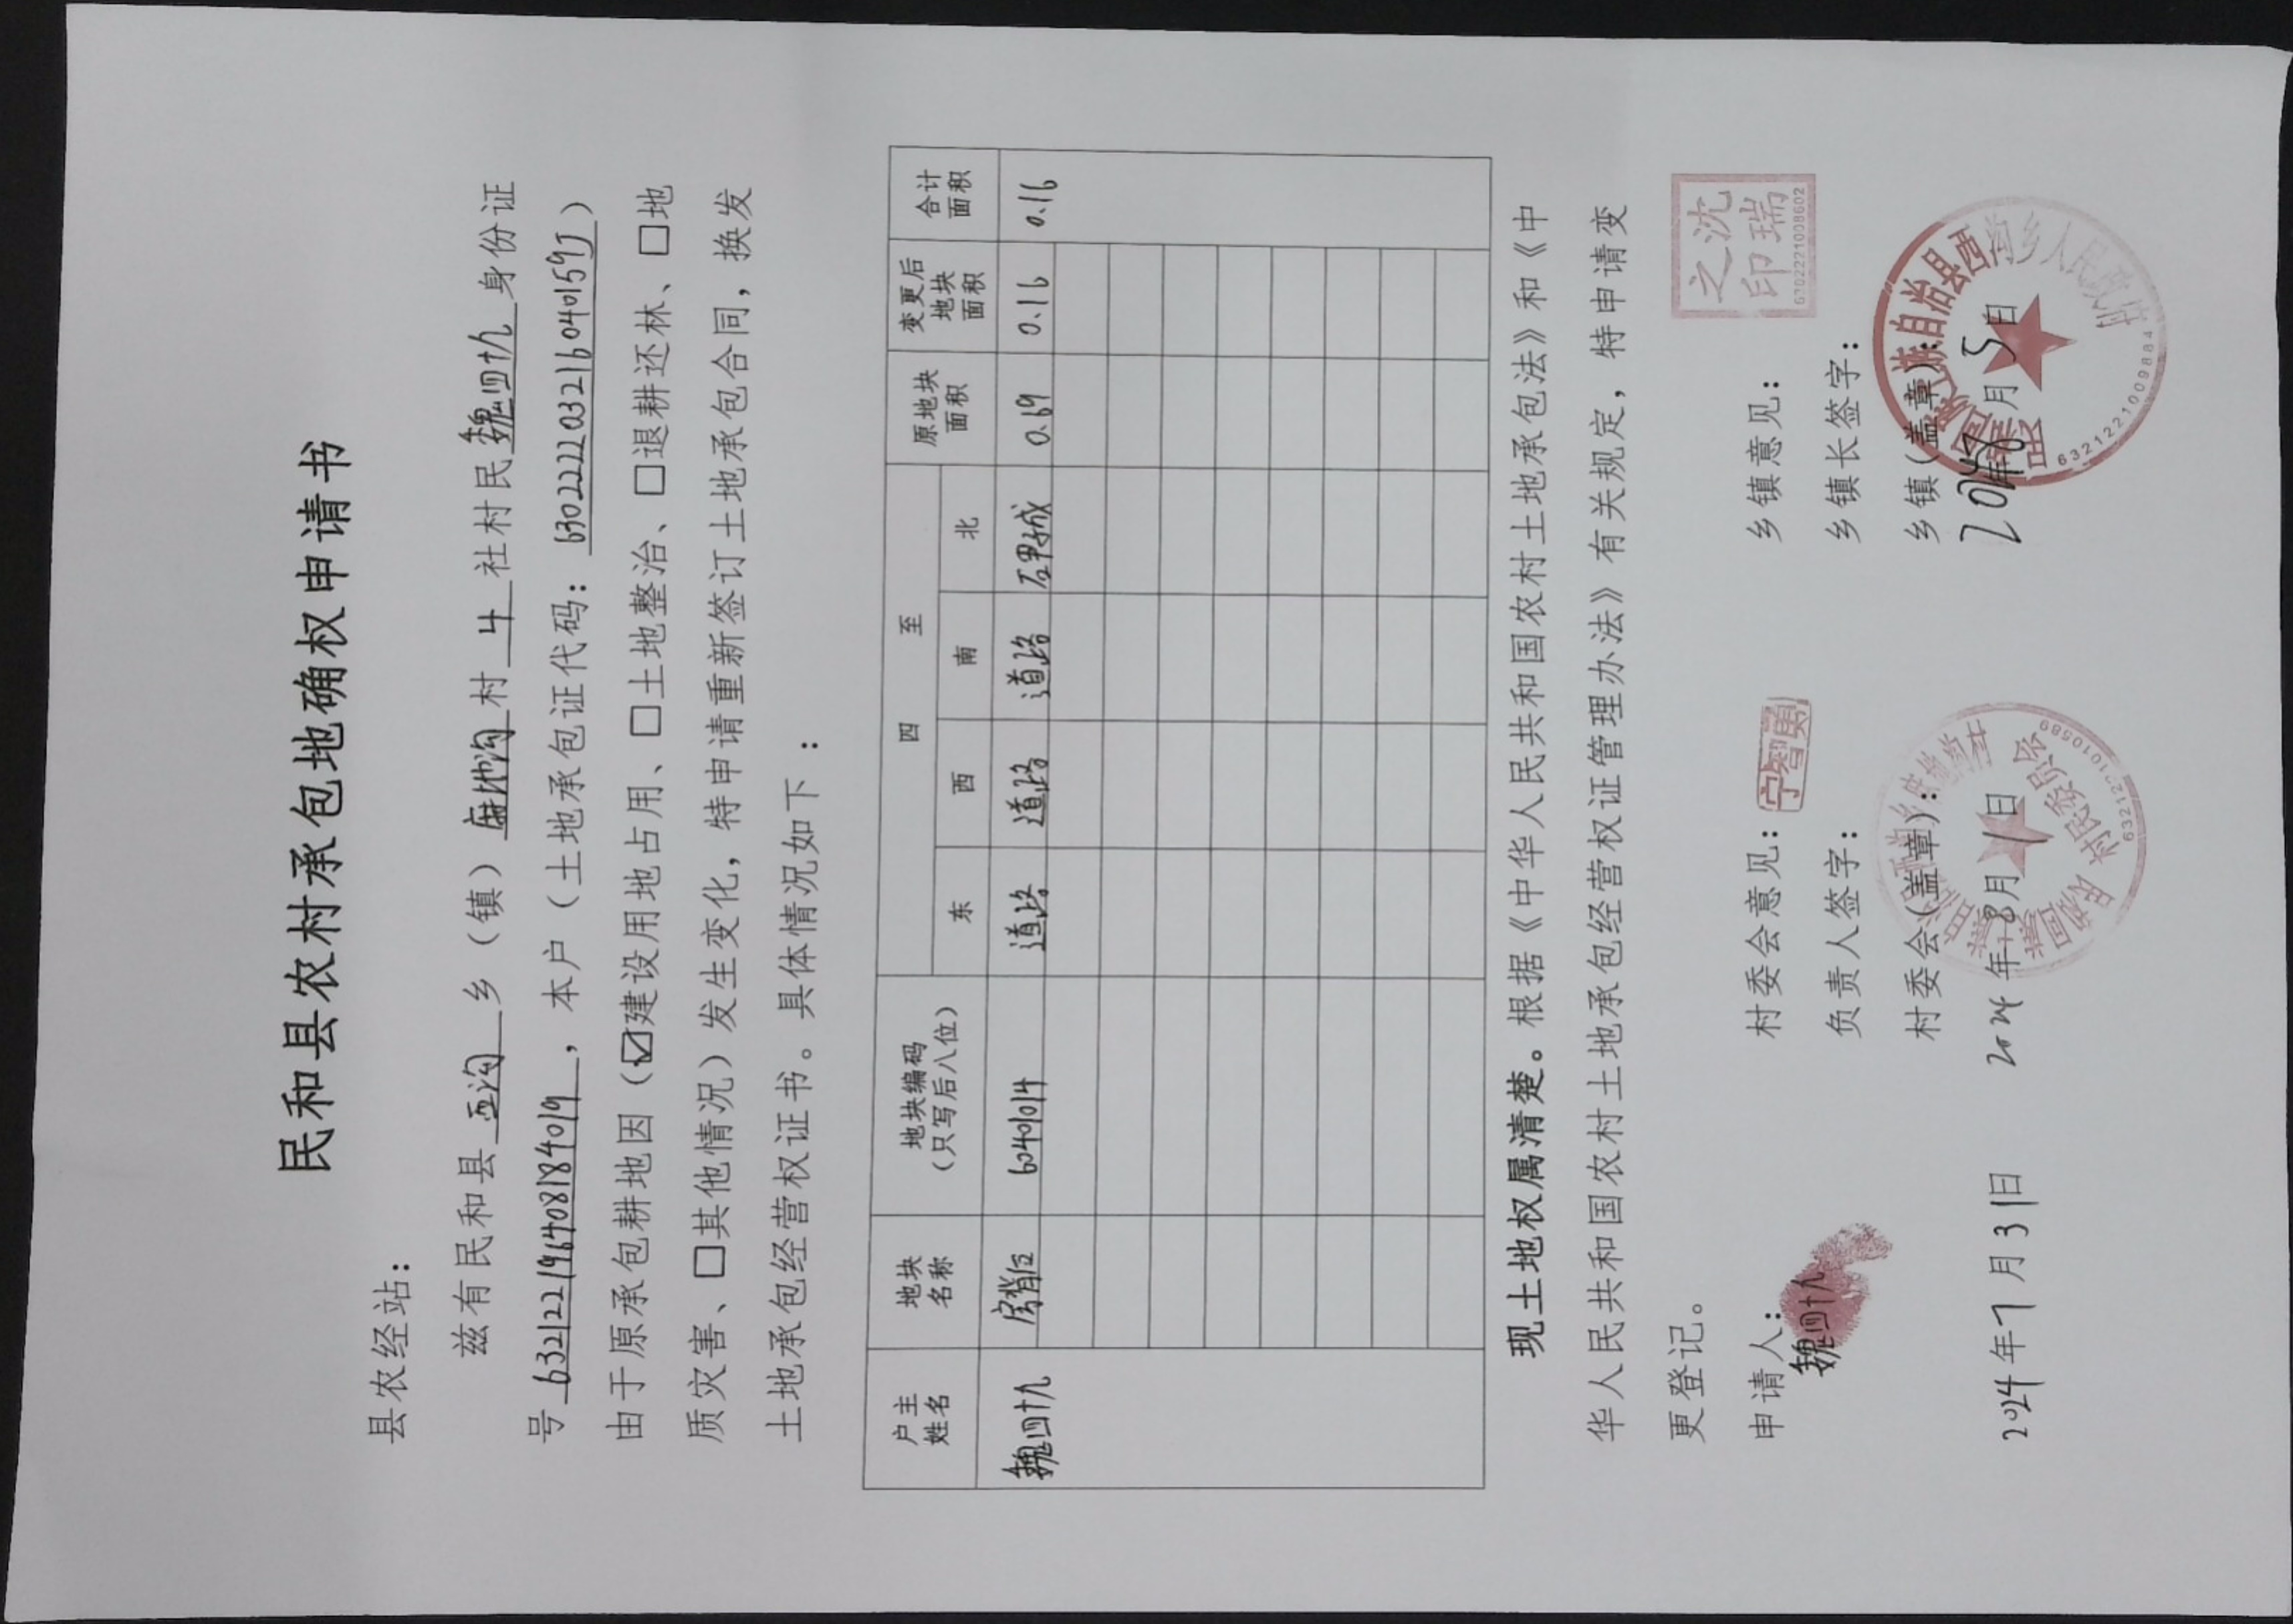 民和县农村承包地确权申请书
县农经站：
兹有民和县 西沟 乡（镇）麻地沟 村 4 社村民 魏四十九 身份证
号 632122196408184019 ，本户（土地承包证代码：630222203216040159J）
由于原承包耕地因（☑建设用地占用、□土地整治、□退耕还林、□地
质灾害、□其他情况）发生变化，特申请重新签订土地承包合同，换发
土地承包经营权证书。具体情况如下 ：
户主姓名 地块名称 地块编码（只写后八位） 四 至 原地块面积 变更后地块面积 合计面积
东 西 南 北
魏四十九 房背后 60401014 道路 道路 道路 石甲子成 0.69 0.16 0.16
现土地权属清楚。根据《中华人民共和国农村土地承包法》和《中
华人民共和国农村土地承包经营权证管理办法》有关规定，特申请变
更登记。
申请人： 村委会意见： 宁智勇 乡镇意见： 沈瑞之印 6302221008602
魏四十九
负责人签字： 乡镇长签字：
村委会（盖章）： 乡镇（盖章）：
2024年7月31日 2024年8月1日 2024年8月5日
民和回族土族自治县西沟乡麻地沟村
村民委员会
民和回族土族自治县西沟乡人民政府
6321221009884